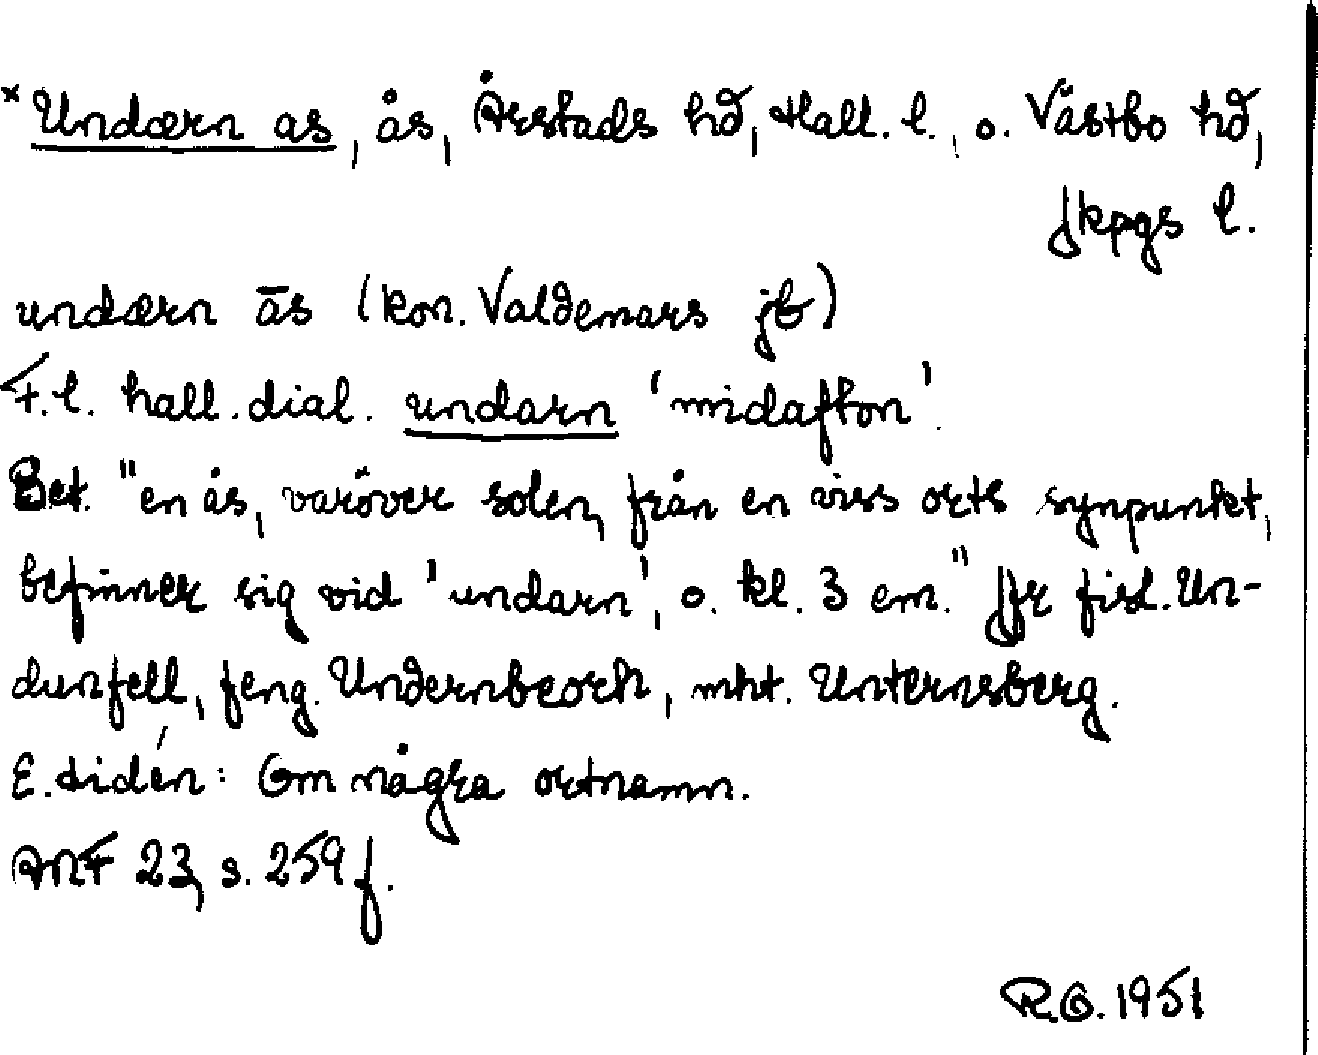 *Undærn as, ås, Årstads hd, Hall. l., o. Västbo hd,
Jkpgs l.
undærn ās (kon. Valdemars jb)
F.l. hall. dial. undarn 'midafton'.
Bet. "en ås, varöver solen, från en viss orts synpunkt,
befinner sig vid 'undarn', o. kl. 3 em." Jfr fisl. Un-
dunfell, feng. Undernbeorh, mht. Unternsberg.
E. Lidén: Om några ortnamn.
ANF 23, s. 259 f.
R.G. 1951